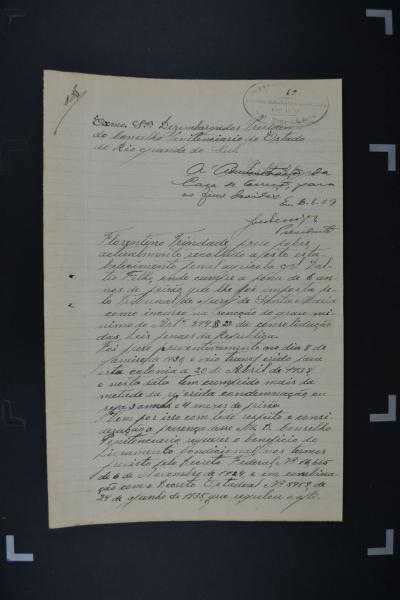 67
Exmo. Snr. Dezembargador Presidente
do Conselho Penitenciario do Estado
do Rio grande do Sul.
A' Administração da
Casa de Correção, para
os fins devidos.
Em
Presidente
Florentino Trindade, preso pobre
actualmente recolhido a este esta-
belecimento penal agricola
Filho, onde cumpre a pena de 6 an-
nos de prisão que lhe foi imposta pe-
lo Tribunal do Jury de Santa Maria
como incurso na sancção do grau mi-
nimo do Art. 294 § 2º da consolidação
das Leis penaes da Republica.
Foi preso preventivamente no dia 8 de
Janeiro de 1936 e veio transferido para
esta colonia a 20 de Abril de 1938
e nesta data tem cumprido mais da
metade da referida condemnação ou
seja 3 annos e 4 mezes de prisão.
Vem por isso com todo respeito e consi-
deração a presença desse M. D. Conselho
Penitenciario, requerer o beneficio do
Livramento Condicional nos termos
previsto pelo Decreto Federal Nº 16,665
de 6 de Novembro de 1924, e em combina-
ção com o Decreto Estadual Nº
24 de Junho de 1935, que regulou